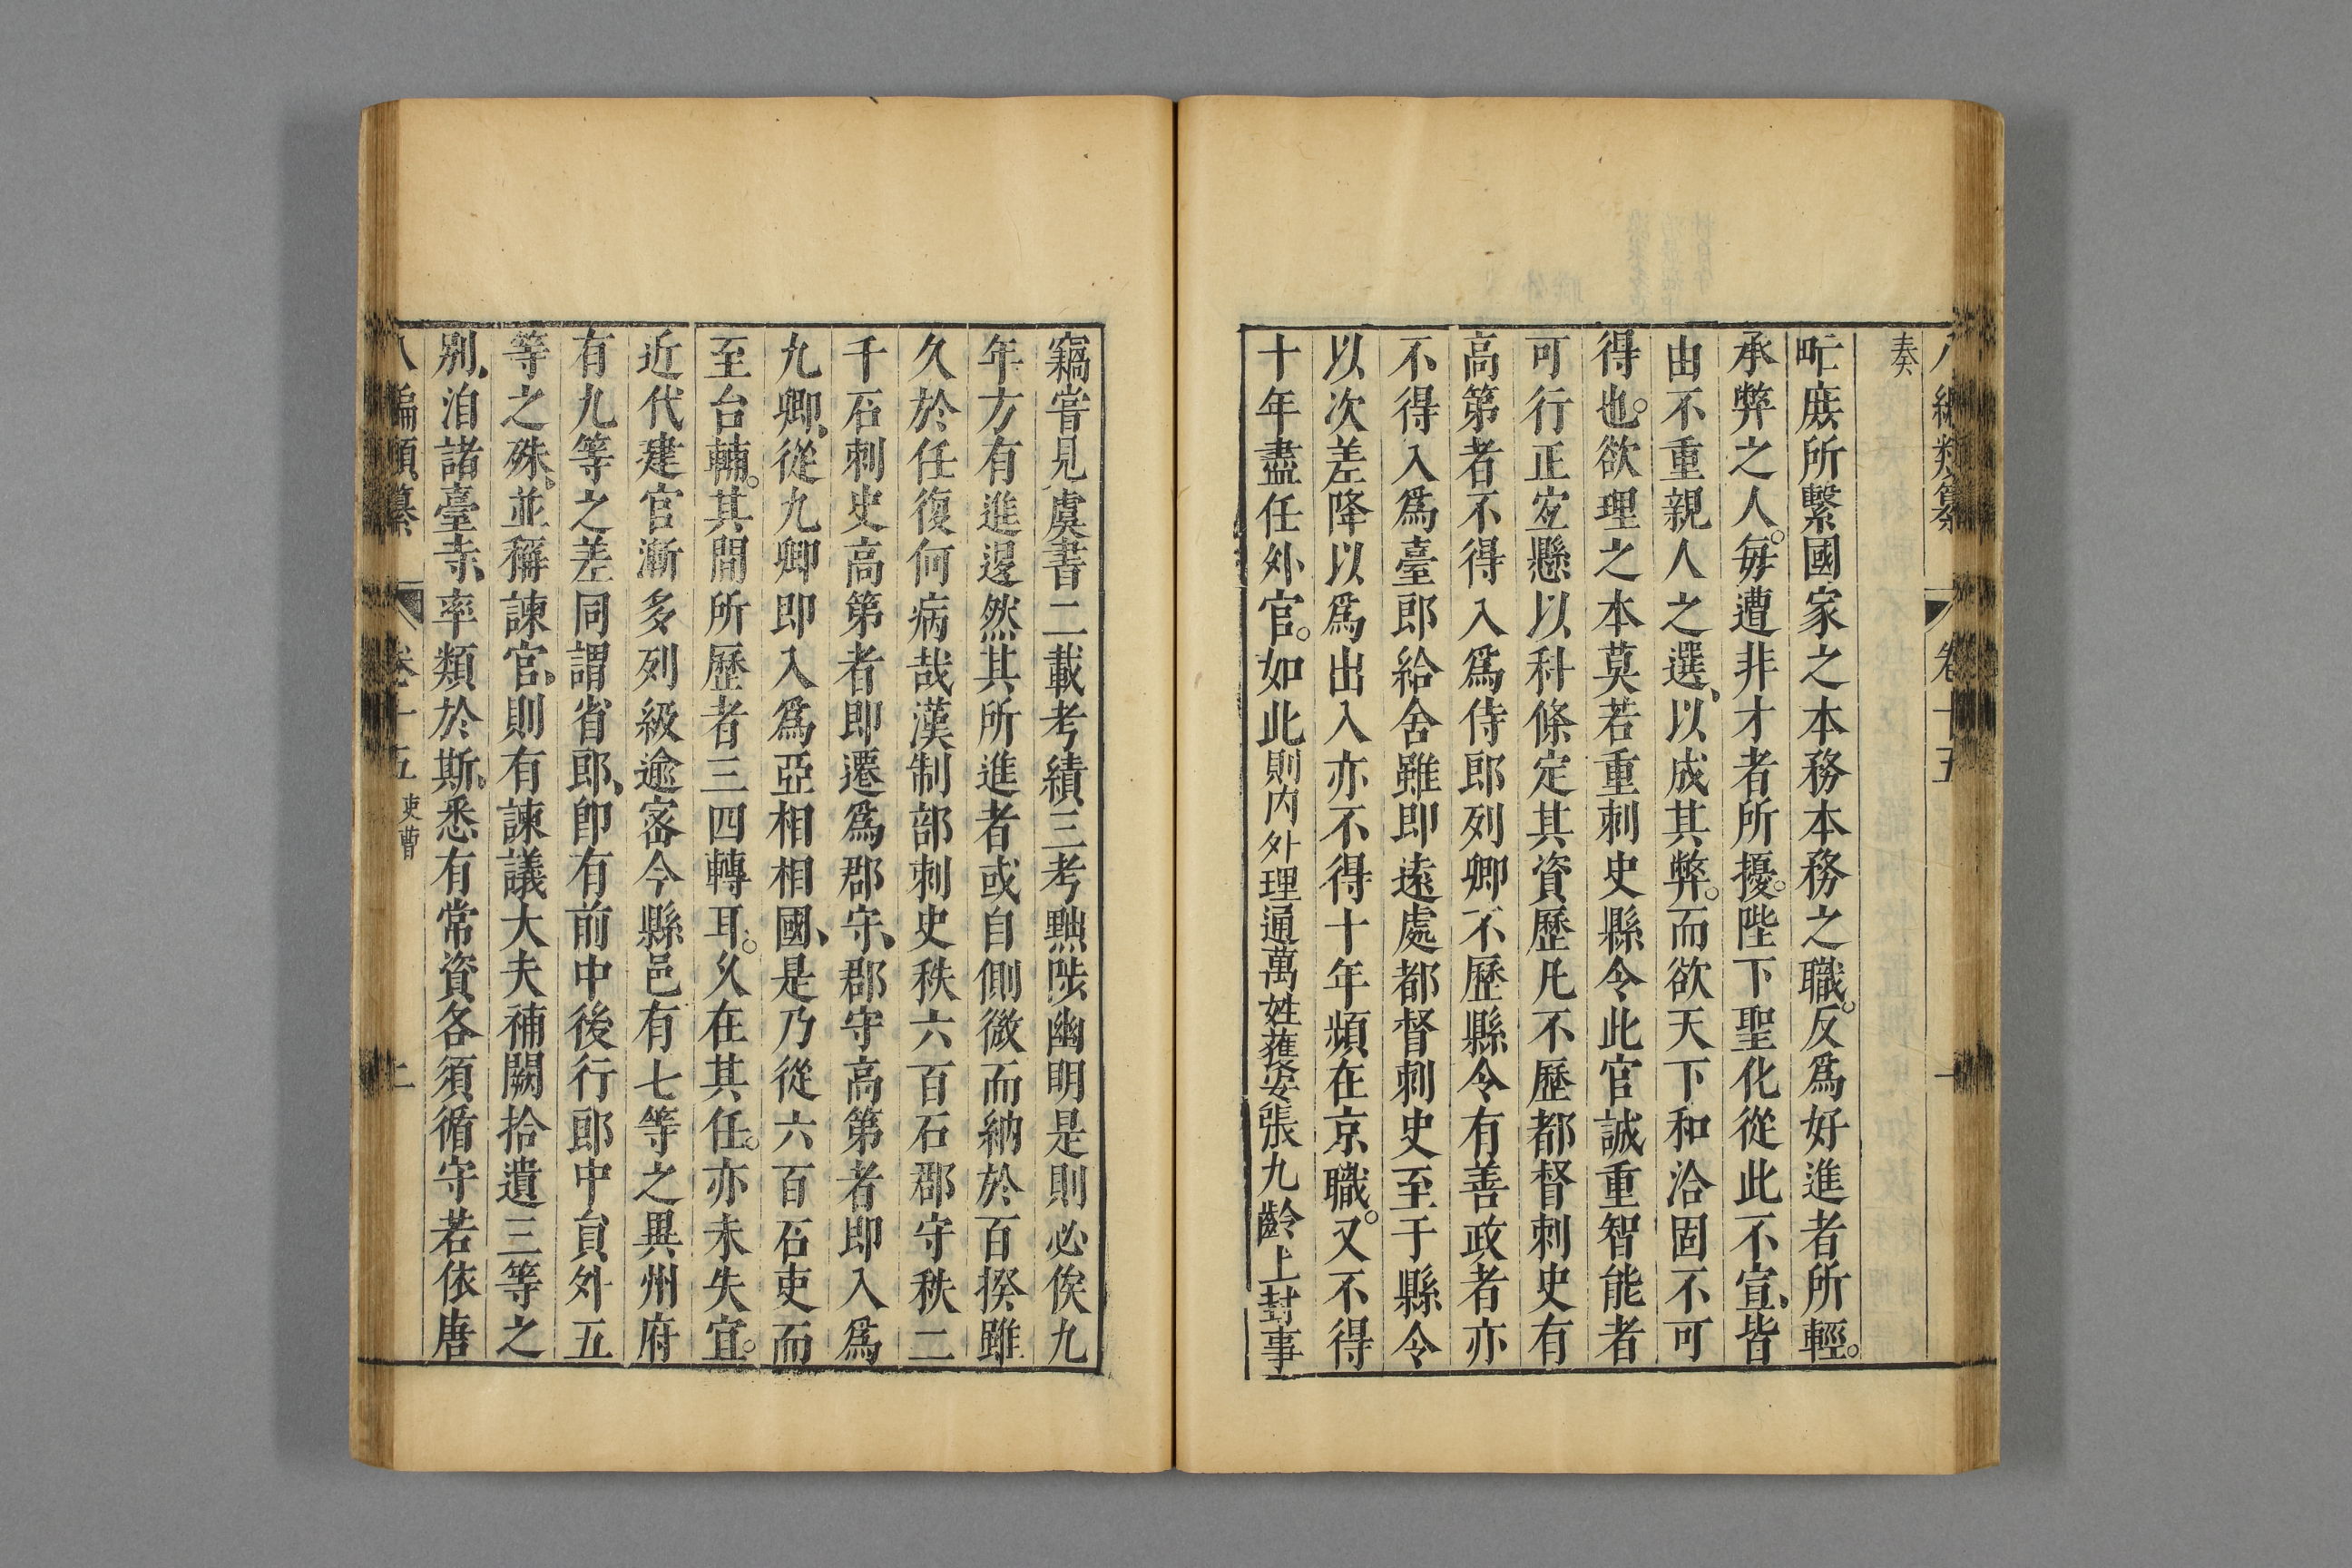 八編類纂 卷十五 一
奏
甿庶所繫國家之本務本務之職。反爲好進者所輕。
承弊之人。每遭非才者所擾。陛下聖化從此不宣、皆
由不重親人之選、以成其弊。而欲天下和洽固不可
得也。欲理之本莫若重刺史縣令此官誠重智能者
可行正宜懸以科條定其資歷凡不歷都督刺史有
高第者不得入爲侍郎列卿不歷縣令有善政者亦
不得入爲臺郎給舍雖即遠處都督刺史至于縣令
以次差降以爲出入亦不得十年頻在京職。又不得
十年盡任外官。如此則内外理通萬姓獲安張九齡上封事
竊嘗見虞書二載考績三考黜陟幽明是則必俟九
年方有進退然其所進者或自側微而納於百揆雖
久於任復何病哉漢制部刺史秩六百石郡守秩二
千石刺史高第者即遷爲郡守、郡守高第者即入爲
九卿、從九卿即入爲亞相相國、是乃從六百石吏而
至台輔。其間所歷者三四轉耳。久在其任。亦未失宜。
近代建官漸多列級逾密今縣邑有七等之異州府
有九等之差同謂省郎、即有前中後行郎中員外五
等之殊、並稱諫官、則有諫議大夫補闕拾遺三等之
別、洎諸臺寺、率類於斯、悉有常資各須循守若依唐
八編類纂 卷十五 吏曹 二